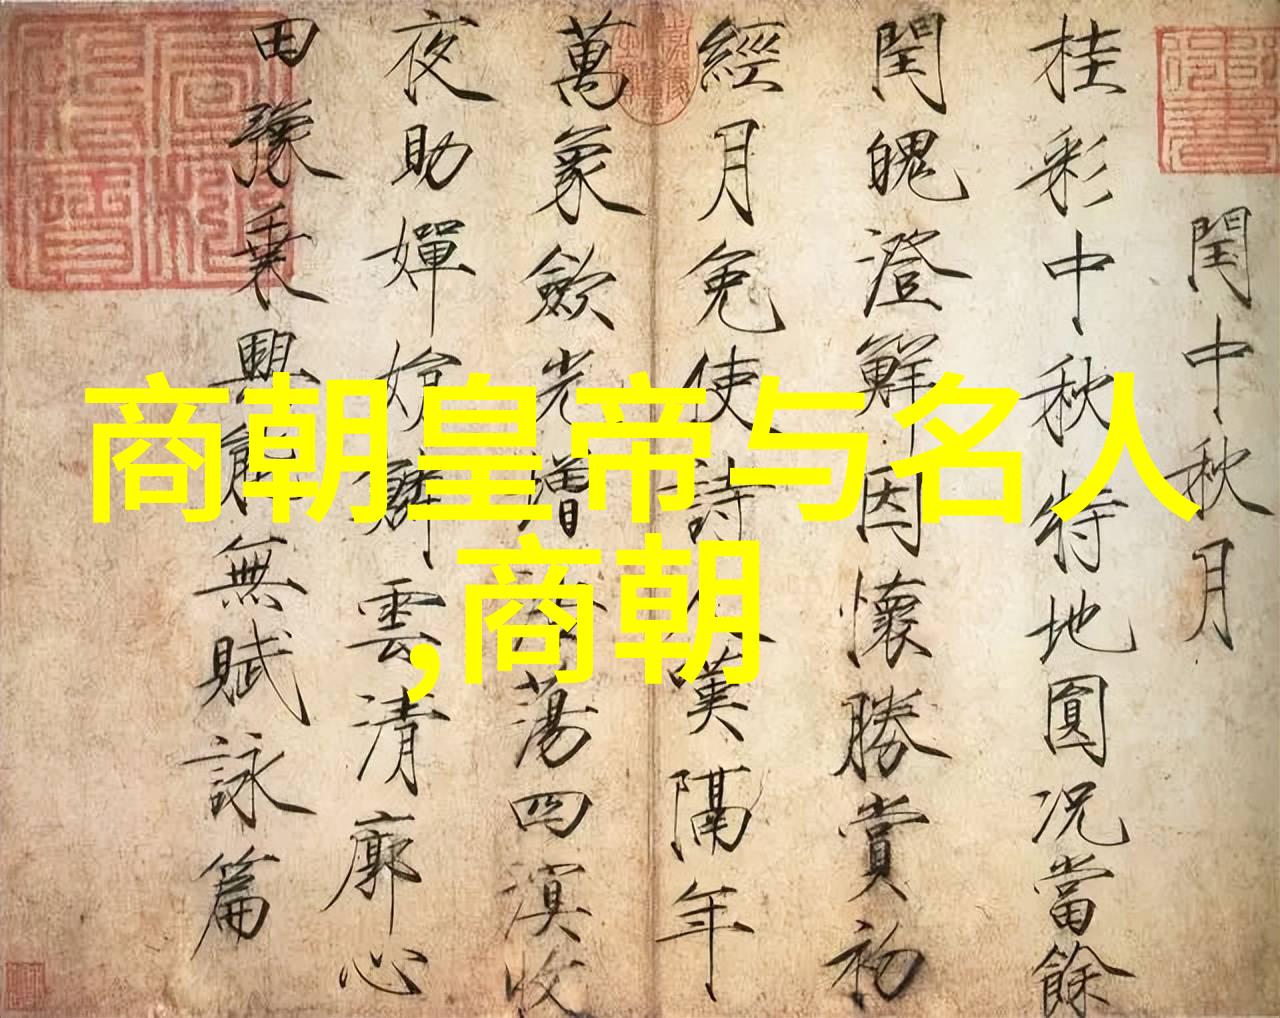 商朝皇帝与名人
,商朝
閏中秋月
桂彩中秋特地圓况當餘
閏魄澄鮮因懷勝賞初
經月免使詩人嘆隔年
萬象歛光增浩蕩四溟收
夜助嬋娟鱗雲清廓心
田豫乗興能無賦詠篇